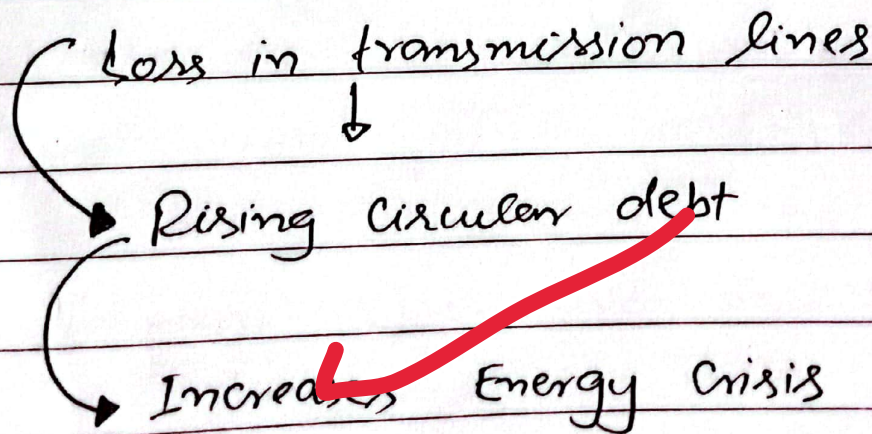 Loss in transmission lines
Rising circular debt
Increases Energy Crisis